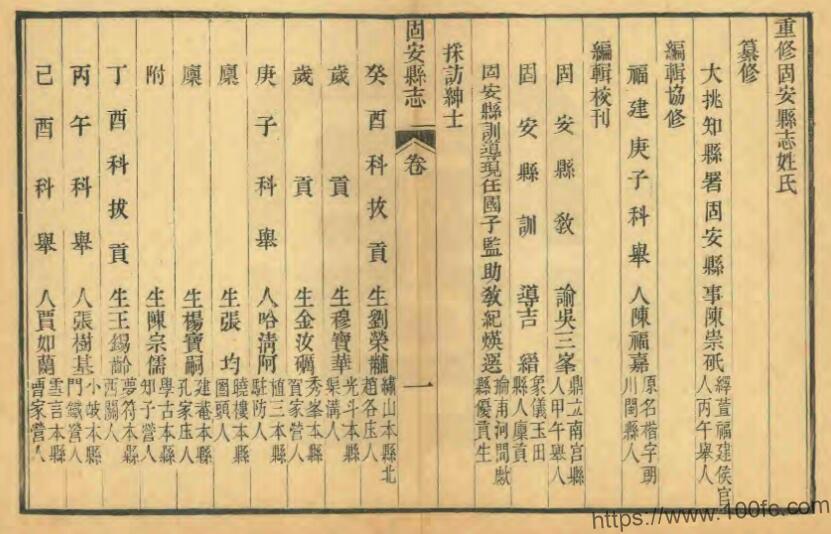 重修固安縣志姓氏
纂修
大挑知縣署固安縣事陳崇砥繹萱福建侯官人丙午舉人
編輯協修
福建庚子科舉人陳福嘉原名楷字朗川閩縣人
編輯校刊
固安縣教諭吳三峯鼎立南宮縣人甲午舉人
固安縣訓導吉緒象儀玉田縣人廩貢
固安縣訓導現任國子監助教紀煐選瑜甫河間獻縣優貢生
採訪紳士
固安縣志 卷 一
癸酉科拔貢生劉榮黼繡山本縣北趙各庄人
歲貢生穆寶華光斗本縣渠溝人
歲貢生金汝礪秀峯本縣賀家營人
庚子科舉人哈清阿値三本縣駐防人
廩生張均曉樓本縣圈頭人
廩生楊寶嗣建菴本縣孔家庄人
附生陳宗儒學古本縣知子營人
丁酉科拔貢生王錫齡夢符本縣西關人
丙午科舉人張樹基小坡本縣門鐵營人
己酉科舉人賈如蘭雲言本縣曹家營人
https://www.100fe.com